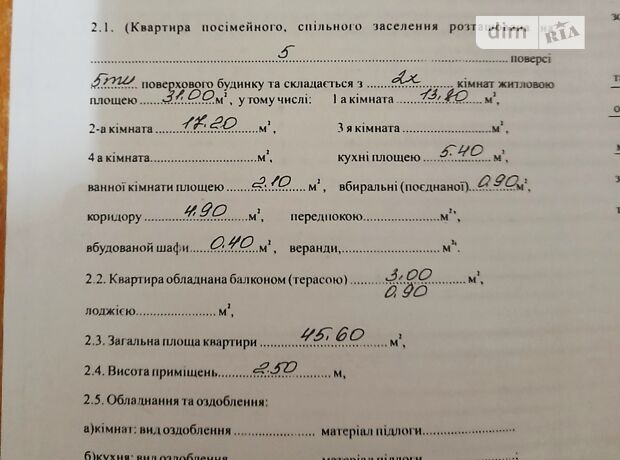 2.1. (Квартира посімейного, спільного заселення
dim RIA
5 поверсі
5ти поверхового будинку та складається з 2х кімнат житловою
площею 31.00 м², у тому числі: 1 а кімната 13,80 м²,
2-а кімната 17.20 м², 3 я кімната м²,
4 а кімната м², кухні площею 5.40 м²,
ванної кімнати площею 2.10 м², вбиральні (поєднаної) 0.90 м²,
коридору 4.90 м², передпокою м²,
вбудованої шафи 0.40 м², веранди, м².
2.2. Квартира обладнана балконом (терасою) 3,00 м²,
0,90
лоджією м²,
2.3. Загальна площа квартири 45,60 м²,
2.4. Висота приміщень 2.50 м,
2.5. Обладнання та оздоблення:
а)кімнат: вид оздоблення матеріал підлоги
б)кухня: вид оздоблення матеріал підлоги